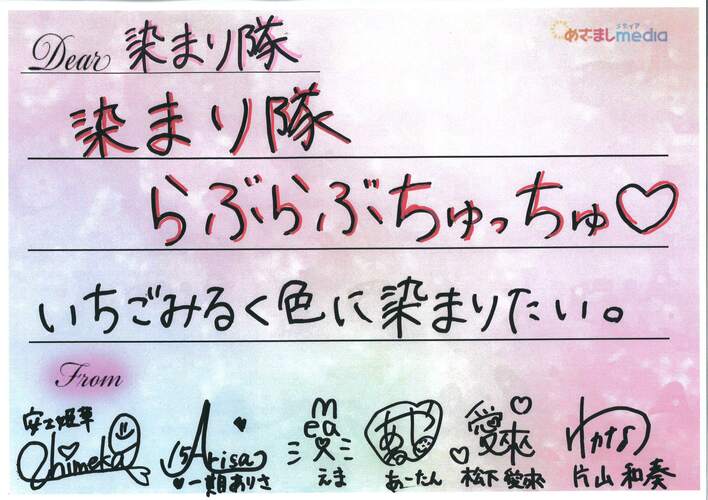 めざましmedia
メディア
Dear 染まり隊
染まり隊
らぶらぶちゅっちゅ♡
いちごみるく色に染まりたい。
From
Arisa
一期ありさ
えま
あーたん
愛來
松下愛來
わかな
片山和奏